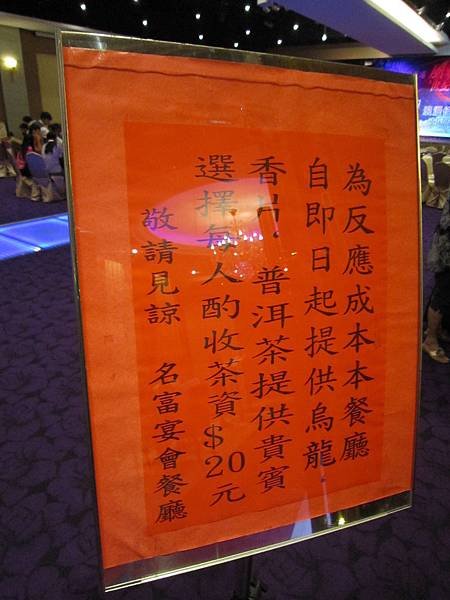 為反應成本本餐廳
自即日起提供烏龍
香片、普洱茶提供貴賓
選擇每人酌收茶資$20元
敬請見諒 名富宴會餐廳